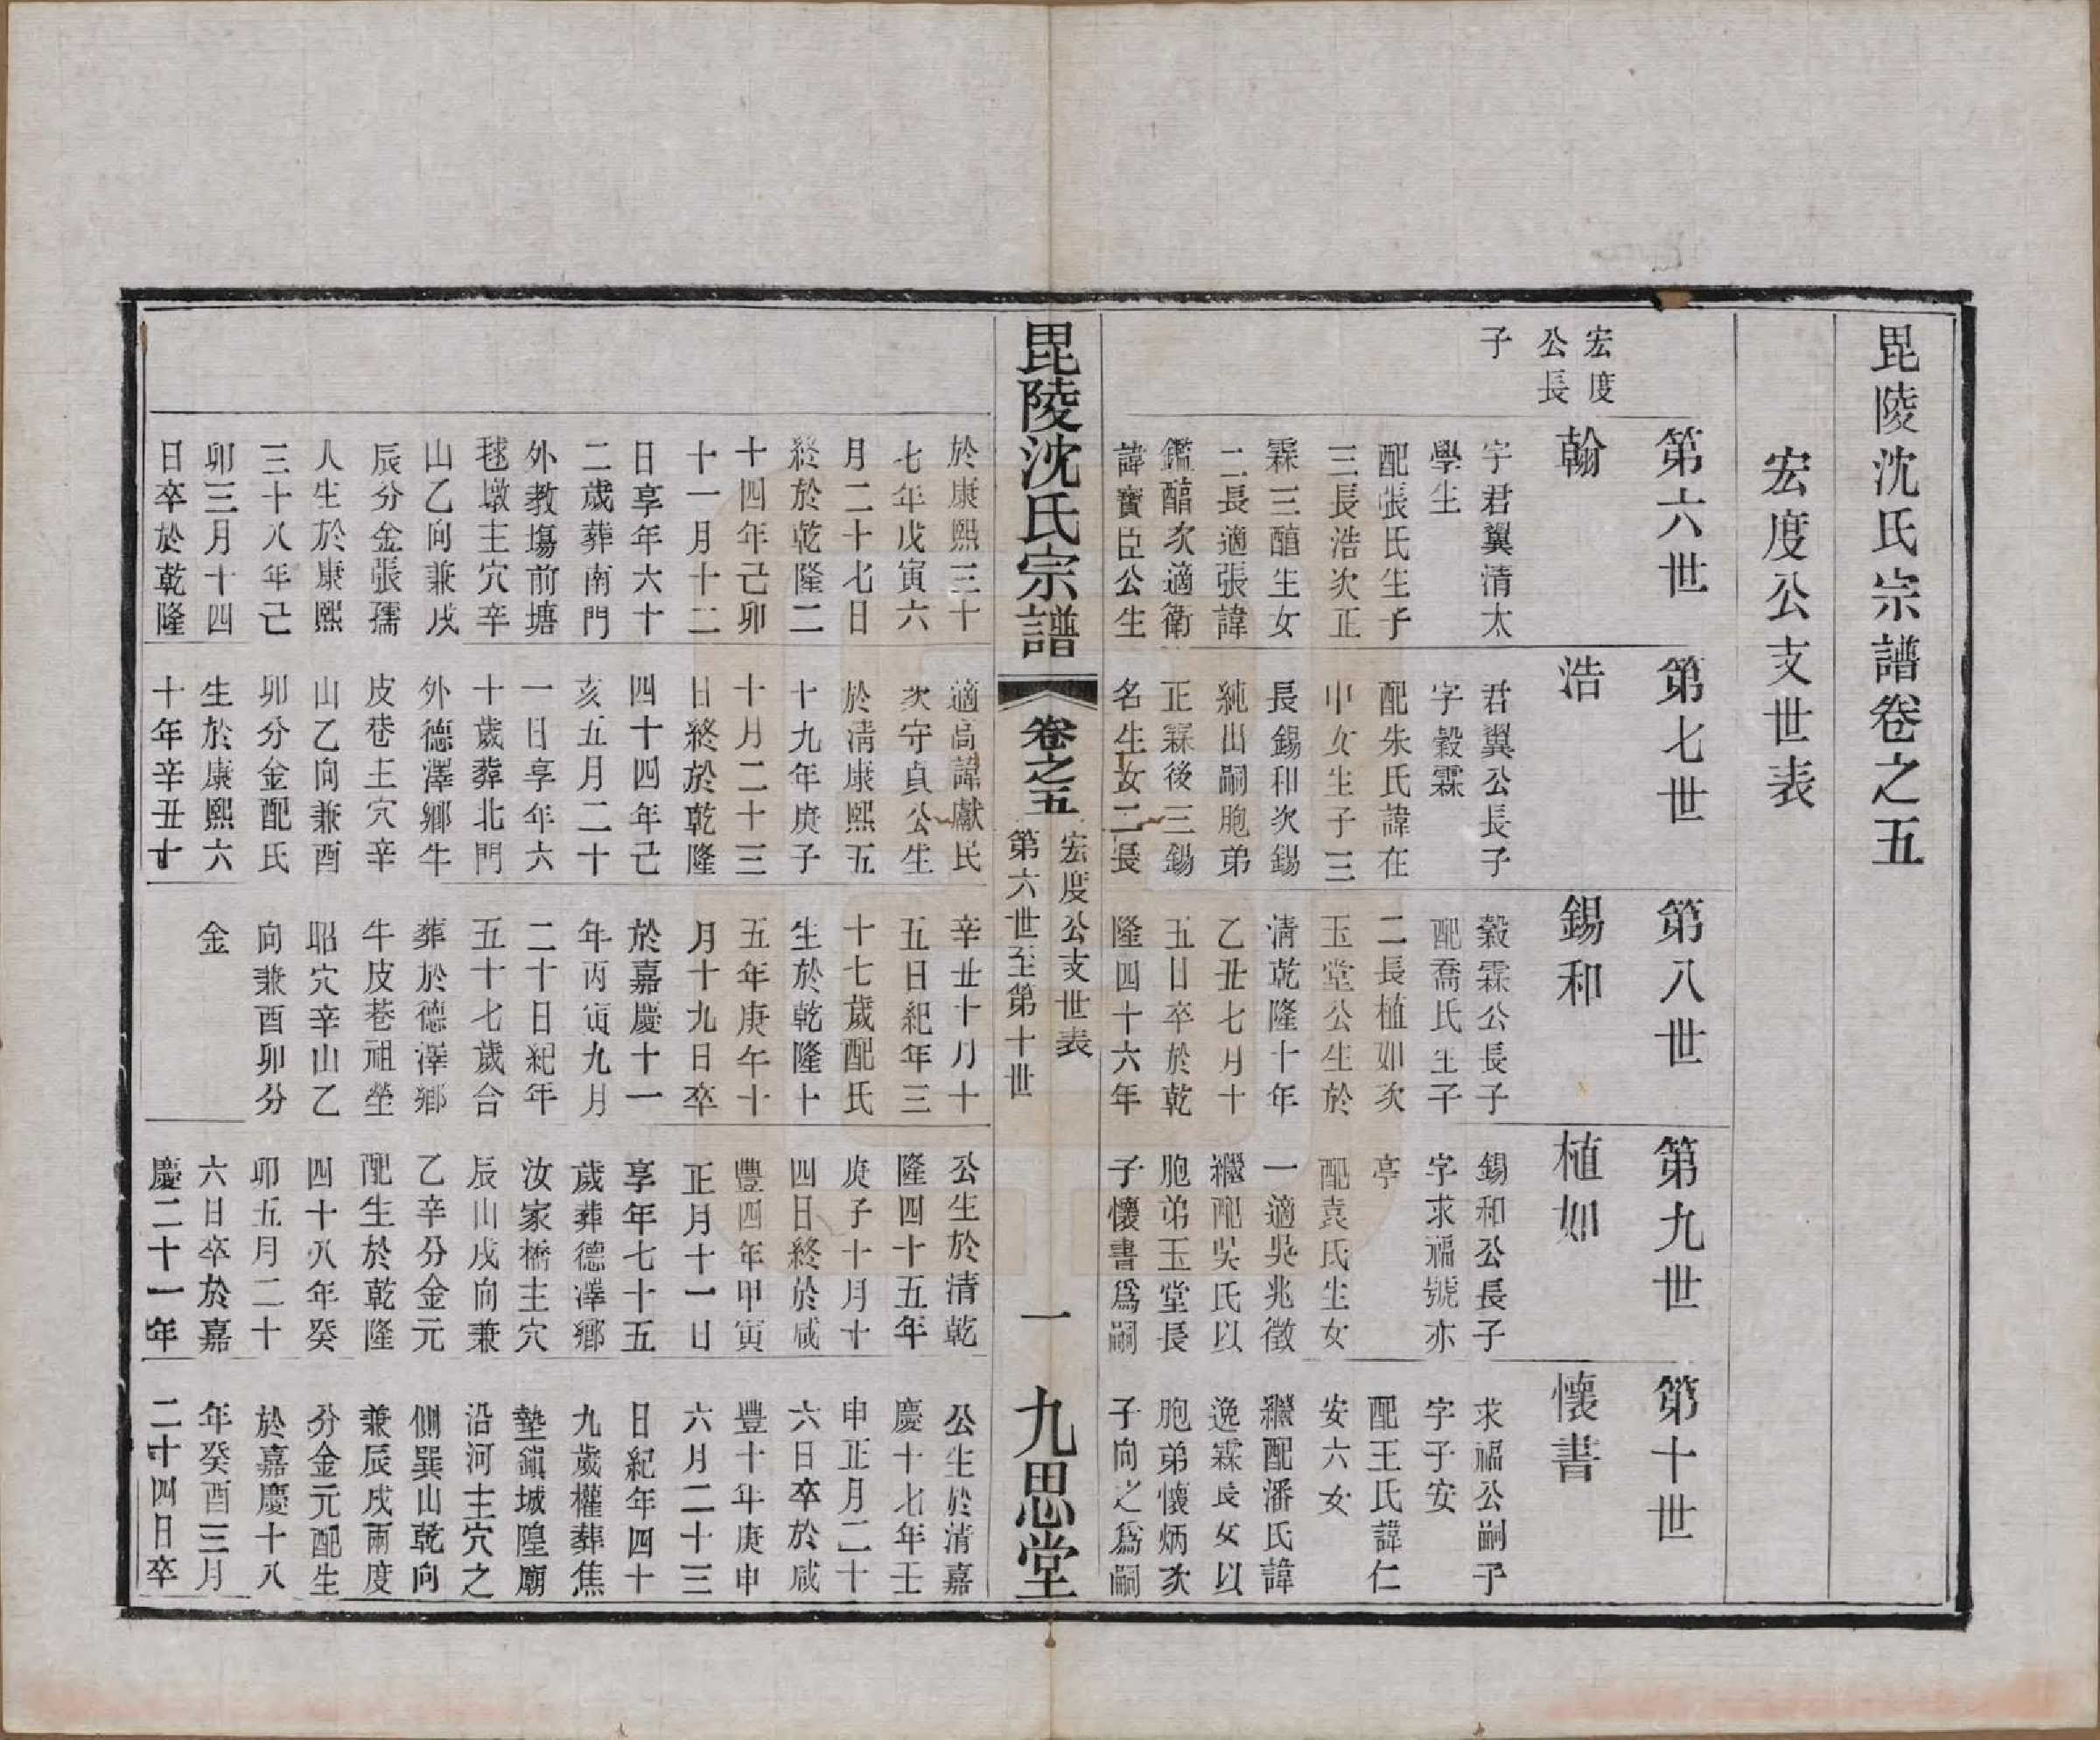 毘陵沈氏宗譜卷之五
宏度公支世表
宏度
公長
子
第六世
翰
字君翼清太
學生
配張氏生子
三長浩次正
霖三醕生女
二長適張諱
鑑醕次適衛
諱寶臣公生
第七世
浩
君翼公長子
字穀霖
配朱氏諱在
中女生子三
長錫和次錫
純出嗣胞弟
正霖後三錫
名生女二長
第八世
錫和
穀霖公長子
配喬氏生子
二長植如次
玉堂公生於
清乾隆十年
乙丑七月十
五日卒於乾
隆四十六年
第九世
植如
錫和公長子
字求福號亦
亭
配袁氏生女
一適吳兆徵
繼配吳氏以
胞弟玉堂長
子懷書爲嗣
第十世
懷書
求福公嗣子
字子安
配王氏諱仁
安六女
繼配潘氏諱
逸霖長女以
胞弟懷炳次
子向之爲嗣
毘陵沈氏宗譜
卷之五
宏度公支世表
第六世至第十世
一
九思堂
於康熙三十
七年戊寅六
月二十七日
終於乾隆二
十四年己卯
十一月十二
日享年六十
二歲葬南門
外教塲前塘
毬墩主穴辛
山乙向兼戌
辰分金張孺
人生於康熙
三十八年己
卯三月十四
日卒於乾隆
適高諱獻民
次守貞公生
於清康熙五
十九年庚子
十月二十三
日終於乾隆
四十四年己
亥五月二十
一日享年六
十歲葬北門
外德澤鄉牛
皮巷主穴辛
山乙向兼酉
卯分金配氏
生於康熙六
十年辛丑十
辛丑十月十
五日紀年三
十七歲配氏
生於乾隆十
五年庚午十
月十九日卒
於嘉慶十一
年丙寅九月
二十日紀年
五十七歲合
葬於德澤鄉
牛皮巷祖塋
昭穴辛山乙
向兼酉卯分
金
公生於清乾
隆四十五年
庚子十月十
四日終於咸
豐四年甲寅
正月十一日
享年七十五
歲葬德澤鄉
汝家橋主穴
辰山戌向兼
乙辛分金元
配生於乾隆
四十八年癸
卯五月二十
六日卒於嘉
慶二十一年
公生於清嘉
慶十七年壬
申正月二十
六日卒於咸
豐十年庚申
六月二十三
日紀年四十
九歲權葬焦
墊鎭城隍廟
沿河主穴之
側巽山乾向
兼辰戌兩度
分金元配生
於嘉慶十八
年癸酉三月
二十四日卒